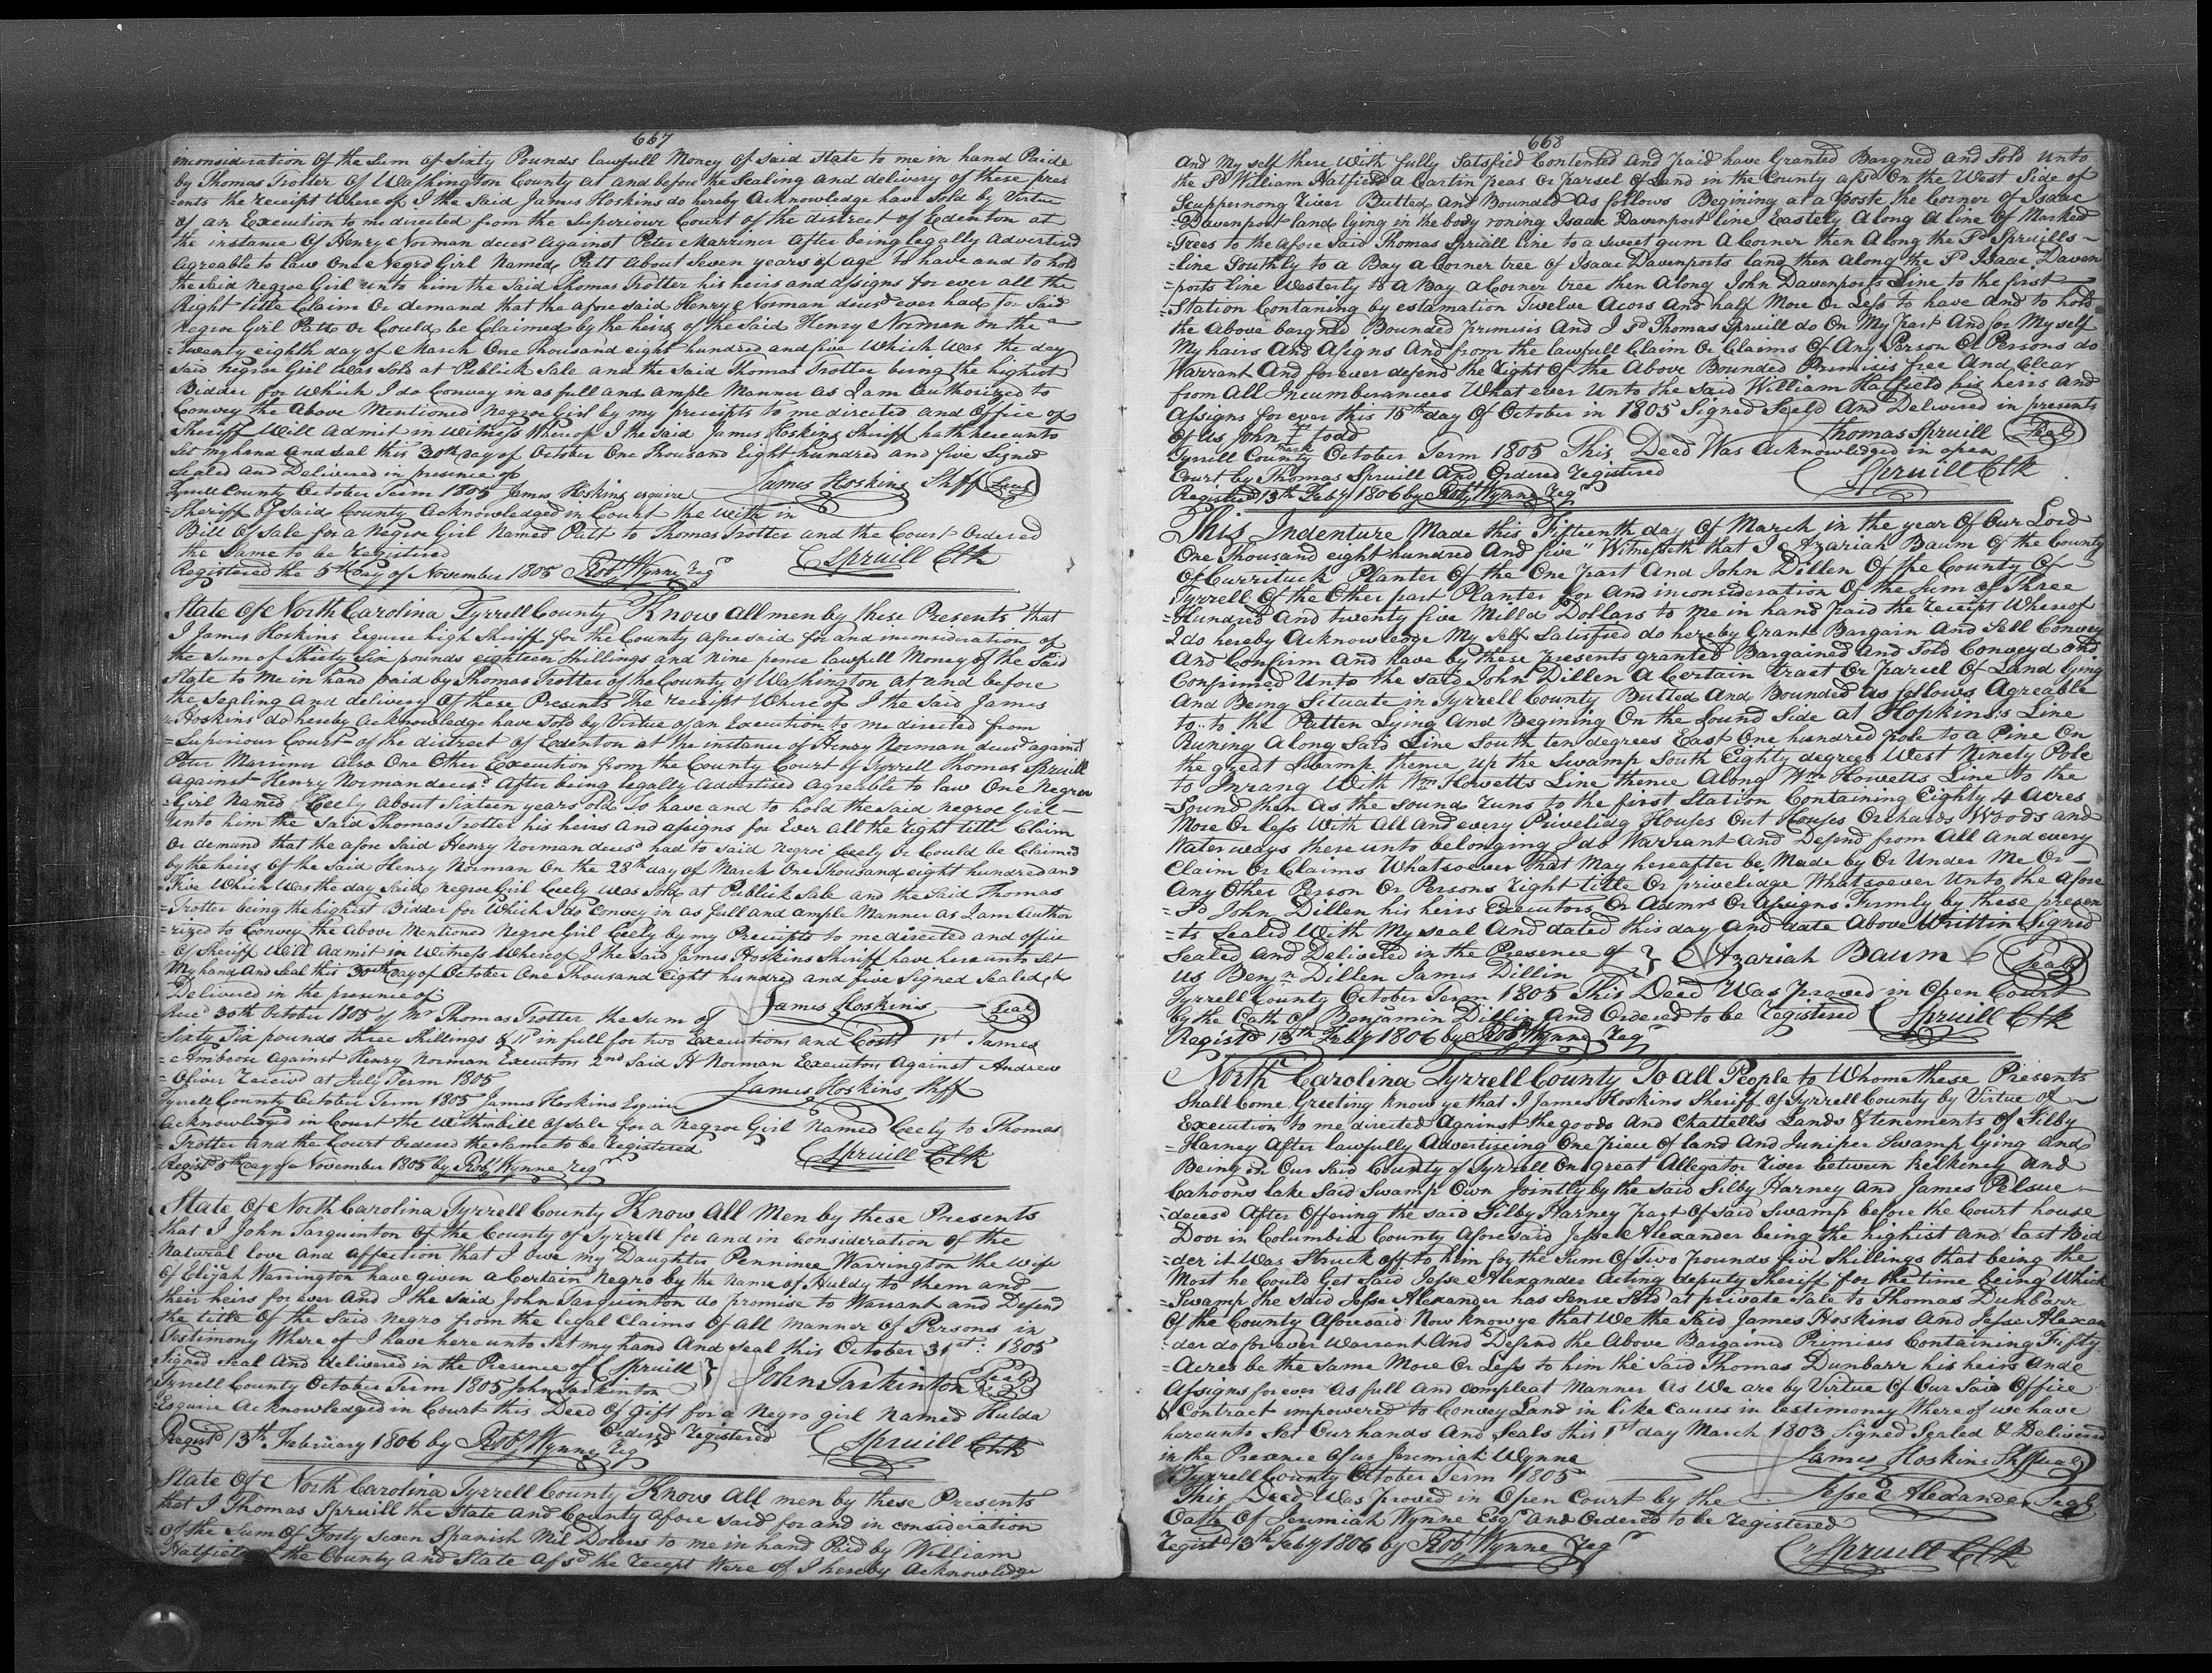 667
inconsideration Of the Sum of Sixty Pounds lawfull Money of said State to me in hand Paide
by Thomas Trotter of Washington County at and before the Sealing and delivery of these pres
=ents the receipt Where of I the Said James Hoskins do hereby Acknowledge have Sold by Virtue
of an Execution to me directed from the Superiour Court of the district of Edenton at
the instance Of Henry Norman deces.d Against Peter Marriner After being legally Advertised
Agreable to law One Negro Girl Named Patt About Seven years of age to have and to hold
the Said Negroe Girl unto him the Said Thomas Trotter his heirs and assigns for ever all the
Right title Claim Or demand that the afore said Henry Norman decesd ever had to Said
Negroe Girl Patt Or Could be Claimed by the heirs of the Said Henry Norman on the
=twenty eighth day of March One Thousand eight hundred and five Which Was the day
Said Negroe Girl Was Sold at Publick Sale and the Said Thomas Trotter being the highest
Bidder for Which I do Convey in as full and ample Manner as I am Authorized to
Convey the Above Mentioned Negroe Girl by my preceipts to me directed and Office of
Sheriff Will Admit in Witness Whereof I the Said James Hoskins Sheriff hath hereunto
Set my hand and Seal this 30th Day of October One Thousand Eight hundred and five Signed
Sealed and Delivered in presence of
James Hoskins Shff (Seal)
Tyrrell County October Term 1805 James Hoskins esquire
=Sheriff of Said County Acknowledged in Court the with in
Bill Of Sale for a Negroe Girl Named Patt to Thomas Trotter and the Court Ordered
the Same to be Registered
C Spruill Clk
Registered the 5th Day of November 1805 Robt Wynne Regr
State Of North Carolina Tyrrell County Know All men by these Presents that
I James Hoskins Esquire high Sheriff for the County Afore said for and inconsideration of
the Sum of Thirty Six pounds eighteen Shillings and Nine pence lawfull Money of the Said
State to Me in hand paid by Thomas Trotter of the County of Washington at and before
the Sealing and delivery Of these Presents The receipt Where of I the Said James
=Hoskins do hereby Acknowledge have Sold by Virtue of an Execution to me directed from
=Superiour Court of the district of Edenton at the instance of Henry Norman decesd against
Peter Marriner Also One Other Execution from the County Court of Tyrrell Thomas Spruill
Against Henry Norman decesd After being legally Advertised Agreable to law One Negroe
=Girl Named Ceely About Sixteen years old to have and to hold the said negroe Girl
unto him the Said Thomas Trotter his heirs and assigns for Ever All the Right title Claim
Or demand that the afore Said Henry Norman decesd had to Said Negroe Ceely Or Could be Claimed
by the heirs Of the Said Henry Norman On the 28th day of March One Thousand eight hundred and
=Five Which Was the day Said Negroe Girl Ceely Was Sold at Publick Sale and the Said Thomas
=Trotter being the highest Bidder for Which I do Convey in as full and ample Manner as I am Author
=rized to Convey the Above Mentioned Negroe Girl Ceely by my Preceipts to me directed and office
=Of Sheriff Will Admit in Witness Whereof I the Said James Hoskins Sheriff have here unto Set
My hand And Seal this 30th Day of October One Thousand Eight hundred and five Signed Sealed &
Delivered in the presence of
James Hoskins (Seal)
Rec.d 30th October 1805 of Mr Thomas Trotter the Sum of
Sixty Six pounds three Shillings & 11d in full for two Executions and Costs 1st James
=Ambrose Against Henry Norman Executors 2nd Said H Norman Executors Against Andrew
=Oliver Receivd at July Term 1805
James Hoskins Shff
Tyrrell County October Term 1805 James Hoskins Esquire
Acknowledged in Court the Within bill of Sale for a Negroe Girl Named Ceely to Thomas
=Trotter And the Court Ordered the Same to be Registered
C Spruill Clk
Registd 5th Day of November 1805 by Robt Wynne Regr
State Of North Carolina Tyrrell County Know All Men by these Presents
that I John Tarquinton Of the County of Tyrrell for and in Consideration of the
Natural love And affection that I owe my Daughter Penninee Warrington the Wife
Of Elijah Warrington have given a Certain Negro by the Name of Huldy to them and
their heirs for ever And I the Said John Tarquinton do promise to Warrant and Defend
the title Of the Said Negro from the legal Claims Of All Manner Of Persons in
Testimony Where of I have here unto Set my hand And Seal this October 31st 1805
Signed Seal And delivered in the Presence of C Spruill
John Tarkinton (Seal)
Tyrrell County October Term 1805 John Tarkinton
Esquire Acknowledged in Court this Deed Of Gift for a Negro girl Named Hulda
Ordered Registered
C Spruill Clk
Registd 13th February 1806 by Robt Wynne Regr
State Of North Carolina Tyrrell County Know All men by these Presents
that I Thomas Spruill the State And County afore said for and in consideration
of the Sum Of Forty Seven Spanish Mil Dolers to me in hand Paid by William
Hatfield the County and State afsd the Recept Were of I hereby Acknowledge
668
And My self there With fully Satisfied Contented And paid have Granted Bargned and Sold unto
the Sd William Hatfield a Cartin peas Or Parsel Of Land in the County afsd On the West Side of
Scuppernong River Butted And Bounded As follows Begining at a Poste the Corner of Isaac
=Davenport land lying in the body roning Isaac Davenport line Eastely Along A line Of Marked
=Trees to the afore Said Thomas Spruill line to a Sweet gum A Corner then Along the Sd Spruills
=line Southly to a Bay a Corner tree of Isaac Davenports land then Along the Sd Isaac Daven
=ports line Westerly to a Bay a Corner tree then Along John Davenports Line to the first
=Station Contaning by estamation Twelve Acors And half More Or Less to have and to hold
the Above bargned Bounded Primisis And I sd Thomas Spruill do On My Part And for Myself
My hairs And Asigns And from the lawfull Claim Or Claims Of Any Person Or Persons do
Warrant And for ever defend the Right Of the Above Bounded Primises free And Clear
from All Incumberances What ever Unto the said William Hatfield his heirs And
Assigns for ever this 15th day Of October in 1805 Signed Seeld And Delivered in presents
of us John T todd
mark
Thomas Spruill (Seal)
Tyrrell County October Term 1805 This Deed Was Acknowledged in open
Court by Thomas Spruill And Ordered Registered
C Spruill Clk
Registerd 13th Feby 1806 by Robt Wynne Regr
This Indenture Made this Fifteenth day Of March in the year Of Our Lord
One Thousand eight hundred And five Witnesseth that I Azariah Baum Of the County
Of Currituck Planter Of the One part And John Dillen Of the County Of
Tyrrell Of the Other part Planter for And inconsideration Of the Sum of Three
=Hundred And twenty five Milld Dollars to Me in hand paid the receipt Whereof
I do hereby Acknowledge My Self Satisfied do hereby Grant Bargain And Sell Convey
And Confirm And have by these presents granted Bargained And Sold Conveyd and
Confirmed Unto the said John Dillen A Certain tract Or Parcel Of Land lying
And Being Situate in Tyrrell County Butted And Bounded as follows Agreable
to to the Patten Lying And Begining On the Sound Side at Hopkins's Line
Runing Along Said Line South ten degrees East One hundred pole to a Pine On
the great Swamp thence up the Swamp South Eighty degrees West Ninety Pole
to Inrang With Wm Howetts Line thence Along Wm Howetts Line to the
=Sound then As the Sound runs to the first Station Containing Eighty 4 Acres
More Or less With All And every Privelidg Houses Out Houses Orchards Woods and
Water ways thereunto belonging I do Warrant And Defend from All And every
Claim Or Claims Whatsoever that May hereafter be Made by Or Under Me Or
Any Other Person Or Persons right title Or privelidge Whatsoever Unto the afore
=Sd John Dillen his heirs Executors Or Admrs Or Assigns Firmly by these presen
=ts Sealed With My Seal And dated this day and date Above Writtin Signed
Sealed and Delivered in the Presence of } Azariah Baum (Seal)
us Benjn Dillen James Dillin
Tyrrell County October Term 1805 This Deed Was proved in Open Court
by the Oath Of Benjamin Dillin And Ordered to be registered C Spruill Clk
Registd 13th Feby 1806 by Robt Wynne Regr
North Carolina Tyrrell County To All People to Whome these Presents
Shall Come Greeting know ye that I James Hoskins Sheriff of Tyrrell County by Virtue of
Execution to me directed Against the goods And Chattells Lands & tenements of Silby
=Harney After lawfully Advertiseing One piece of land And Juniper Swamp lying and
Being in Our Said County of Tyrrell On great Allegator River between Kelkeney and
Cahoons lake Said Swamp Own Jointly by the Said Silby Harney And James Pelsue
=decesd After Offering the said Silby Harney part Of Said Swamp before the Court house
Door in Columbia County Aforesaid Jesse Alexander being the highist And last Bid
=der it Was Struck off to him for the Sum Of Two pounds five Shillings that being the
Most he Could Get Said Jesse Alexander Acting deputy Sheriff for the time being Which
=Swamp the said Jesse Alexander has Sense Sold at private Sale to Thomas Dunbarr
Of the County Aforesaid Now know ye that We the Said James Hoskins And Jesse Alexan
=der do for ever Warrant And Defend the Above Bargained Primises Containing Fifty
=Acres be the Same More Or Less to him the Said Thomas Dunbarr his heirs And
Assigns for ever As full And compleat Manner As We are by Virtue Of Our Said Office
& Contract impowered to Convey Land in like Causes in testimony Where of we have
hereunto Set Our hands And Seals this 1st day March 1803 Signed Sealed & Delivered
in the Presence of us Jeremiah Wynne
James Hoskins Shff (Seal)
Tyrrell County October Term 1805
This Deed Was proved in Open Court by the
Jesse Alexander (Seal)
Oath Of Jeremiah Wynne Esqr And Ordered to be registered
Registd 13th Feby 1806 by Robt Wynne Regr
C Spruill Clk